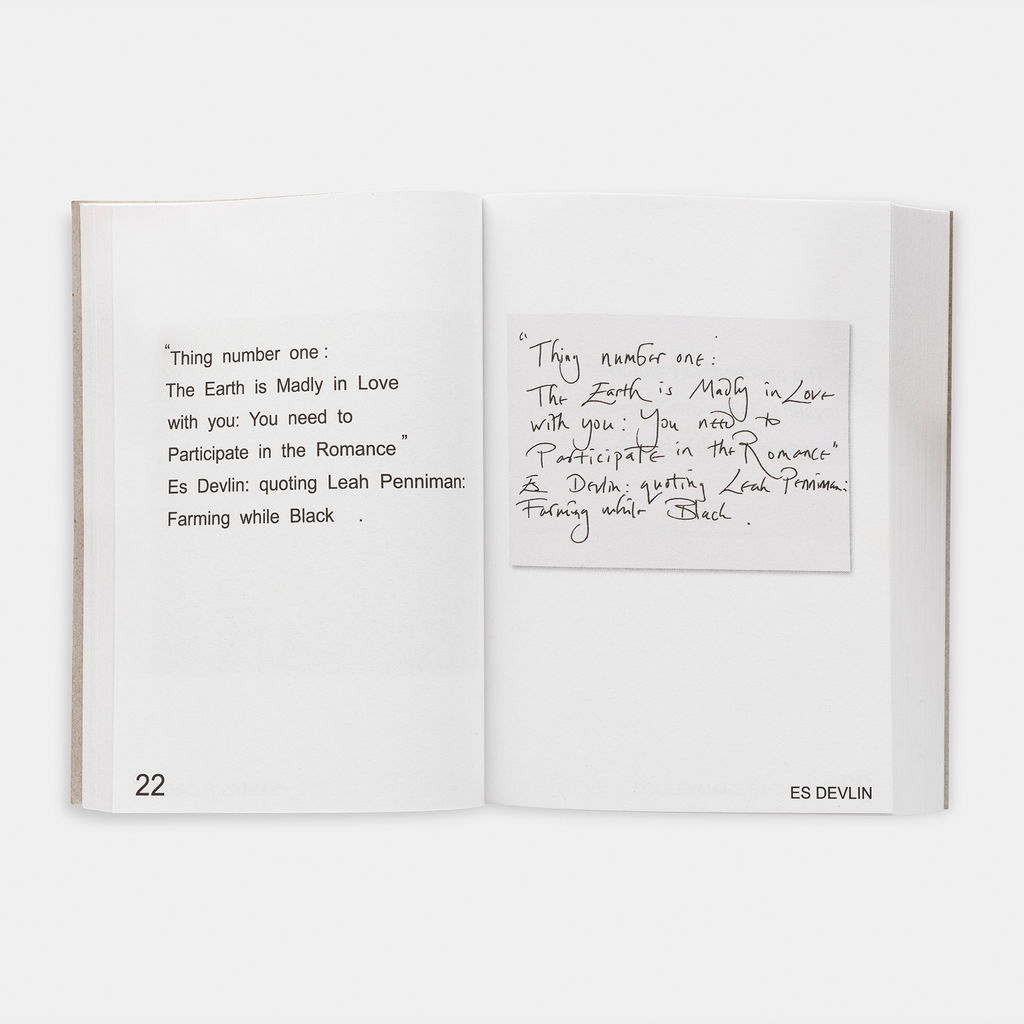 “Thing number one :
The Earth is Madly in Love
with you: You need to
Participate in the Romance ”
Es Devlin: quoting Leah Penniman:
Farming while Black .
22
“Thing number one :
The Earth is Madly in Love
with you : You need to
Participate in the Romance”
Es Devlin: quoting Leah Penniman:
Farming while Black .
ES DEVLIN